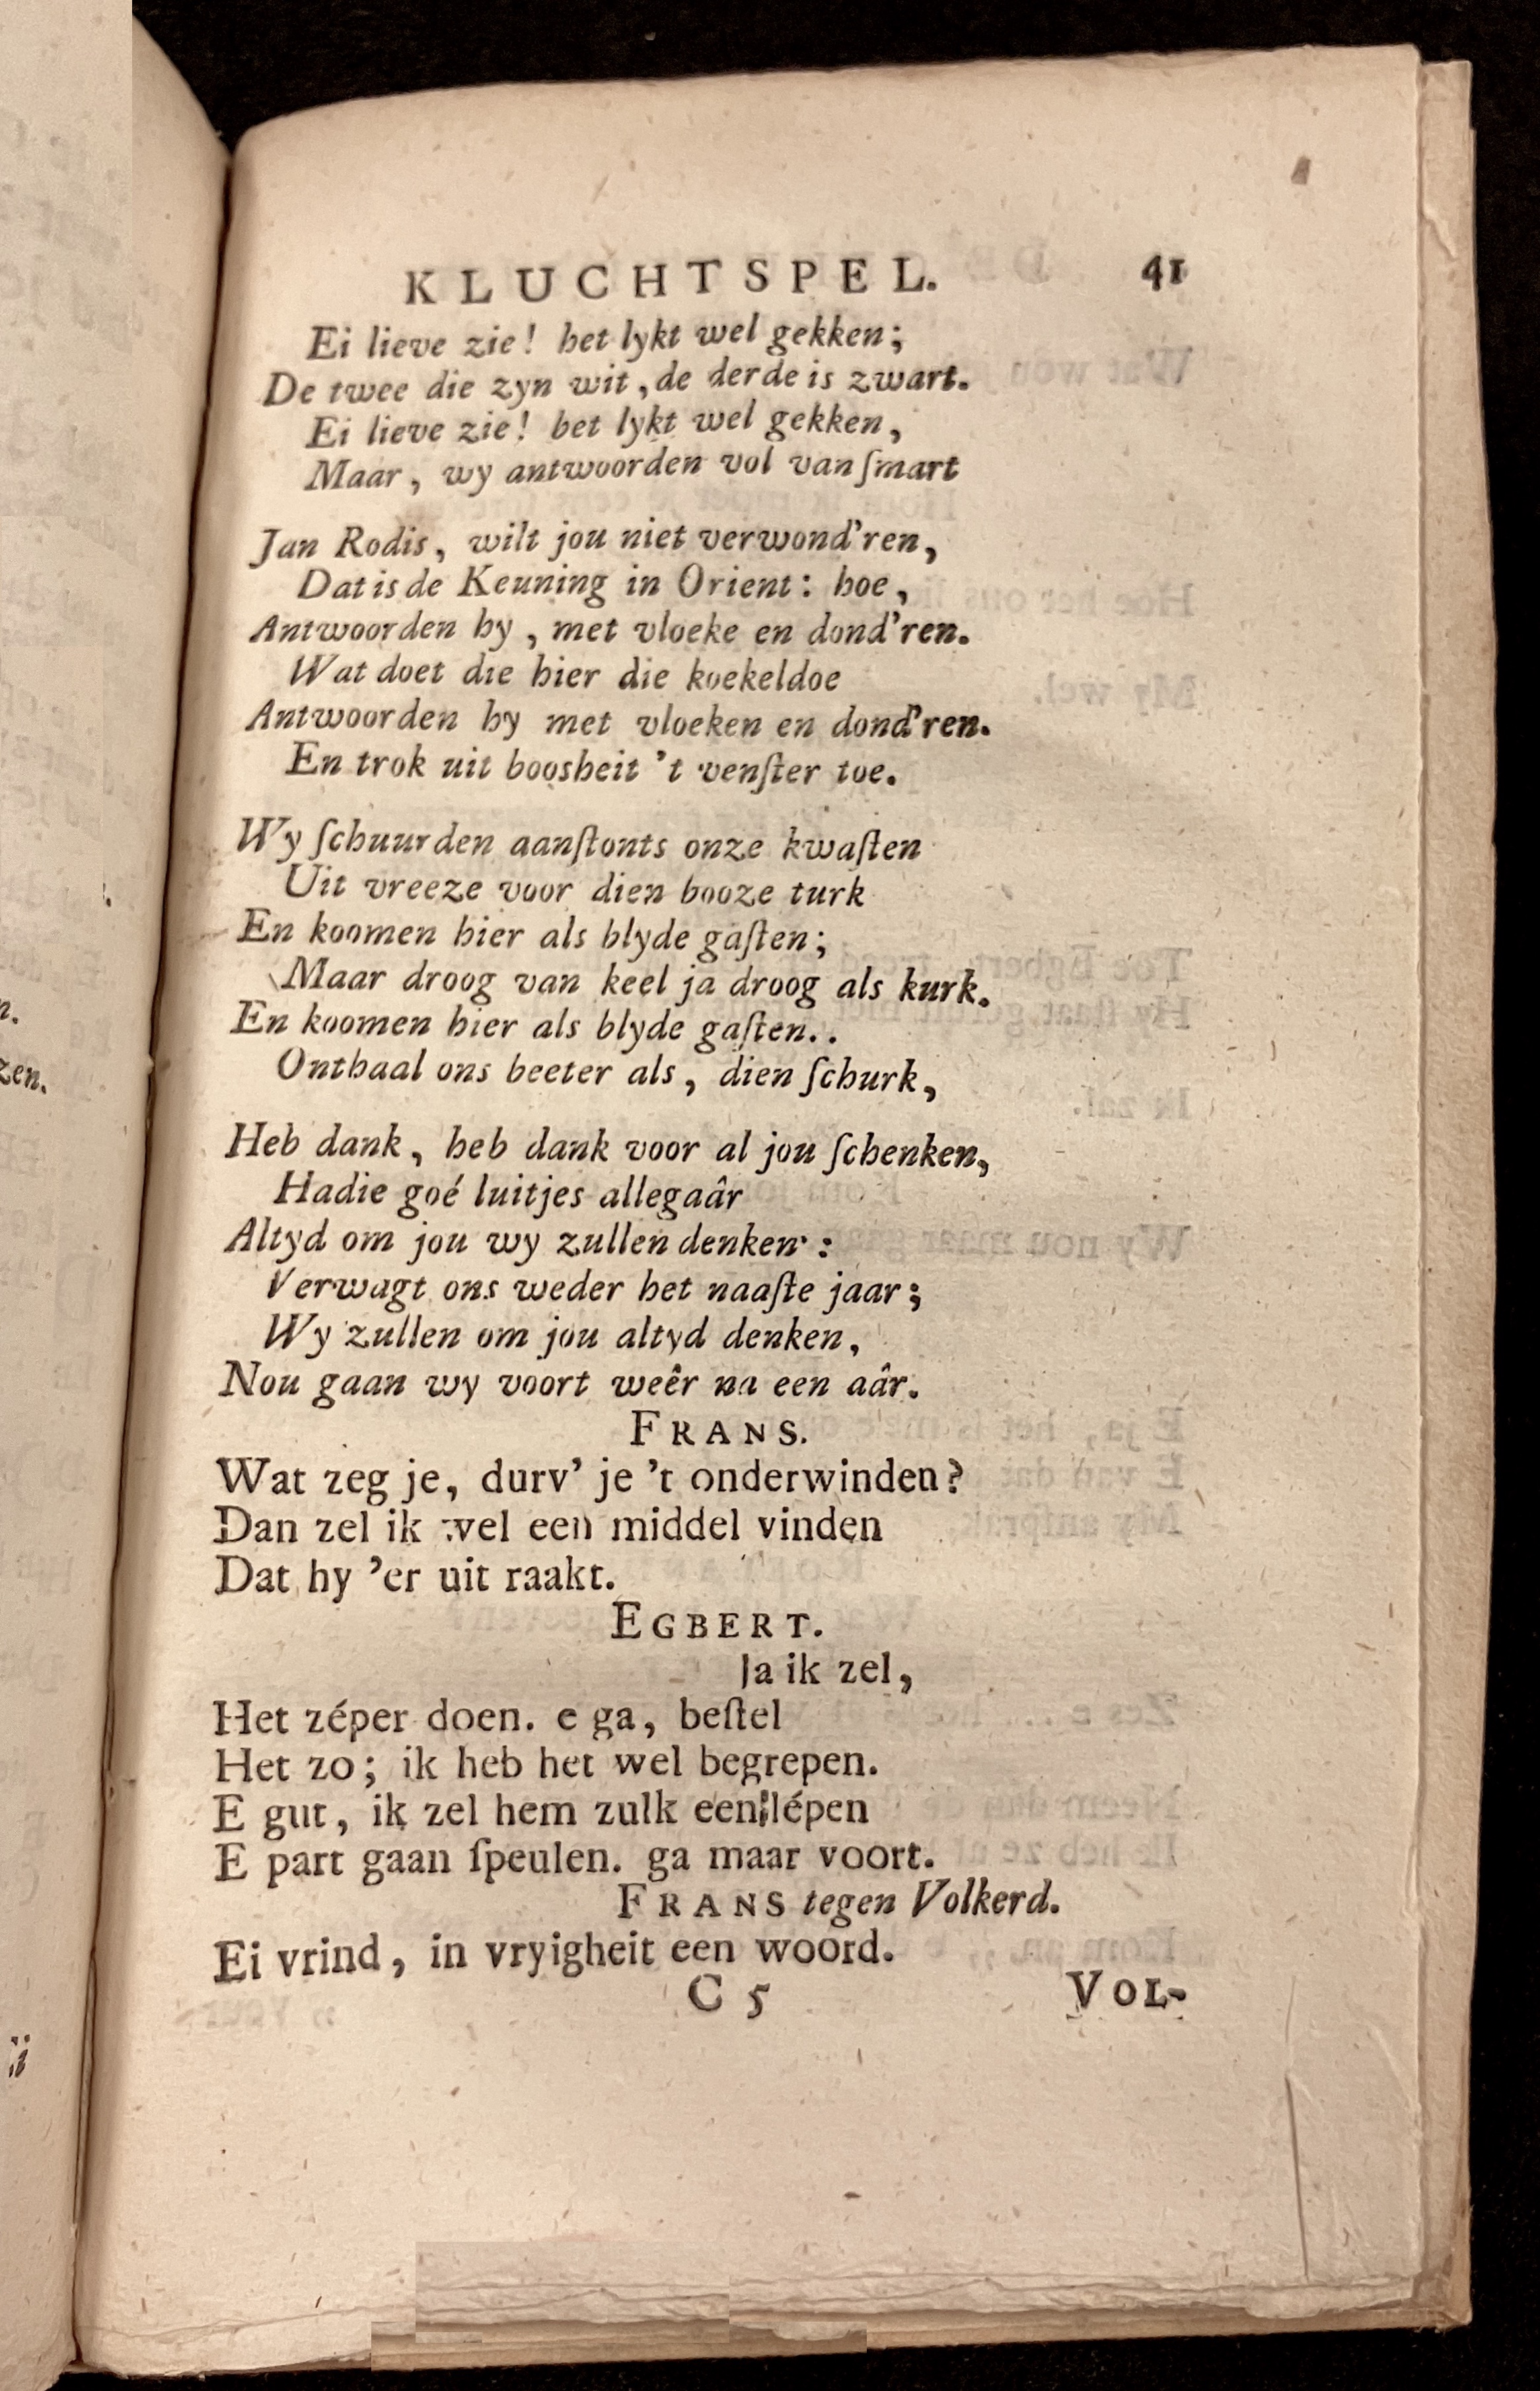 KLUCHTSPEL. 41
Ei lieve zie! het lykt wel gekken;
De twee die zyn wit, de derde is zwart.
Ei lieve zie! het lykt wel gekken,
Maar, wy antwoorden vol van ſmart
Jan Rodis, wilt jou niet verwond'ren,
Dat is de Keuning in Orient: hoe,
Antwoorden hy, met vloeke en dond'ren.
Wat doet die hier die koekeldoe
Antwoorden hy met vloeken en dond'ren.
En trok uit boosheit 't venſter toe.
Wy ſchuurden aanſtonts onze kwaſten
Uit vreeze voor dien booze turk
En koomen hier als blyde gaſten;
Maar droog van keel ja droog als kurk.
En koomen hier als blyde gaſten..
Onthaal ons beeter als, dien ſchurk,
Heb dank, heb dank voor al jou ſchenken,
Hadie goé luitjes allegaâr
Altyd om jou wy zullen denken:
Verwagt ons weder het naaſte jaar;
Wy zullen om jou altyd denken,
Nou gaan wy voort weêr na een aâr.
FRANS.
Wat zeg je, durv' je 't onderwinden?
Dan zel ik wel een middel vinden
Dat hy 'er uit raakt.
EGBERT.
Ja ik zel,
Het zéper doen. e ga, beſtel
Het zo; ik heb het wel begrepen.
E gut, ik zel hem zulk een lépen
E part gaan ſpeulen. ga maar voort.
FRANS tegen Volkerd.
Ei vrind, in vryigheit een woord.
C 5 VOL-